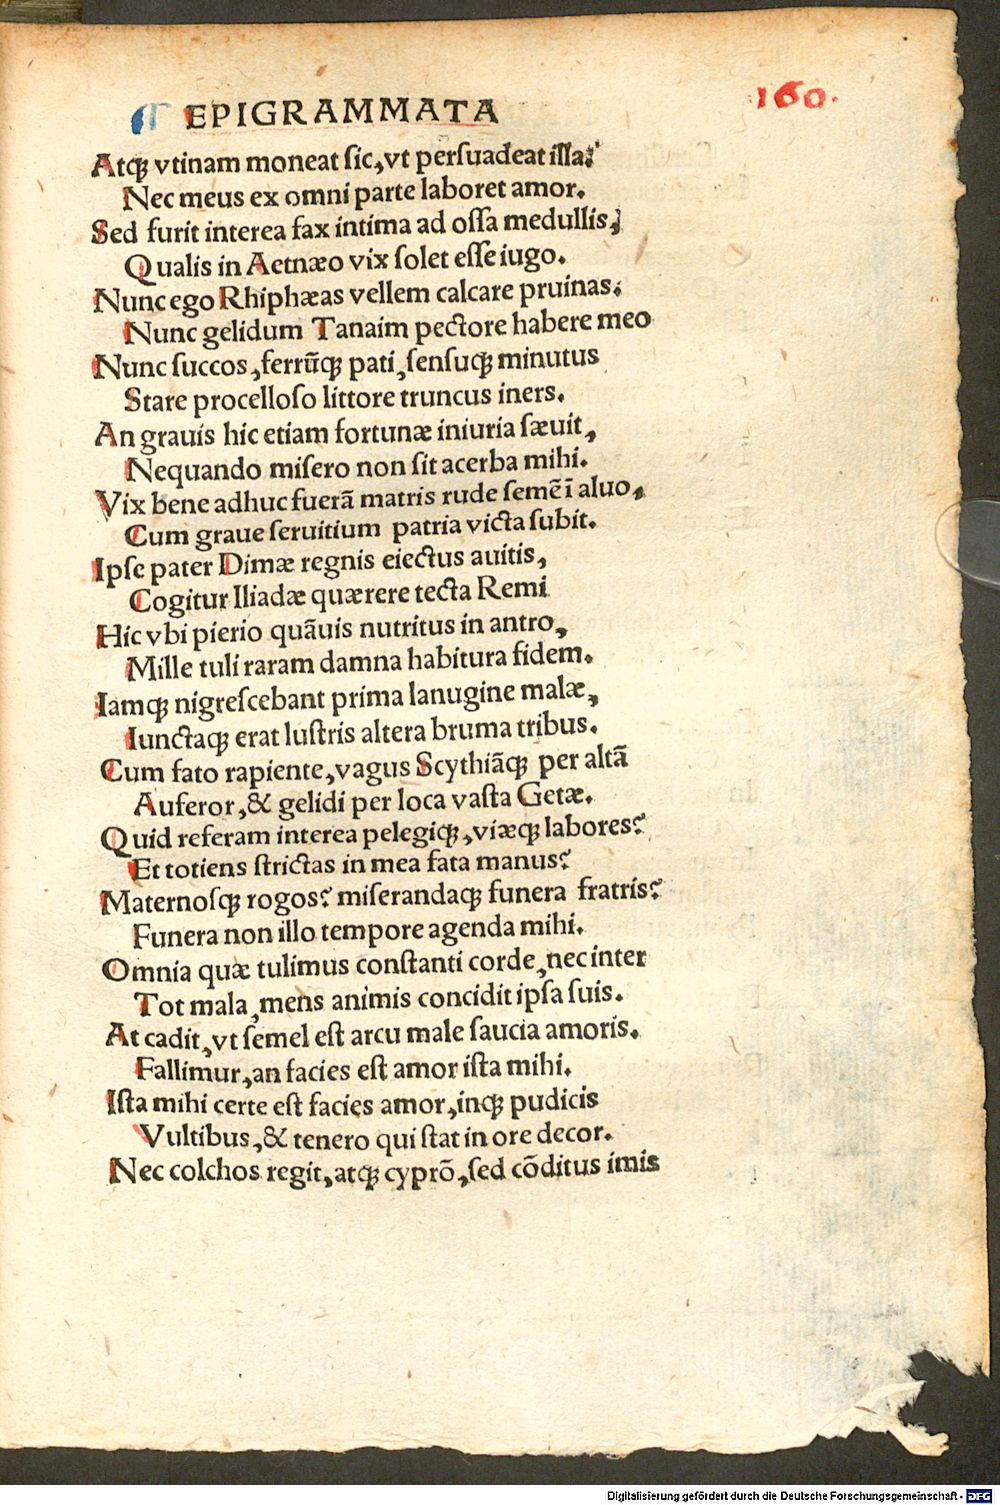 ¶ EPIGRAMMATA
160.
Atqꝫ vtinam moneat sic, vt persuadeat illa:
Nec meus ex omni parte laboret amor.
Sed furit interea fax intima ad ossa medullis,
Qualis in Aetnæo vix solet esse iugo.
Nunc ego Rhiphæas vellem calcare pruinas:
Nunc gelidum Tanaim pectore habere meo
Nunc succos, ferrūqꝫ pati, sensuqꝫ minutus
Stare procelloso littore truncus iners.
An grauis hic etiam fortunæ iniuria sæuit,
Nequando misero non sit acerba mihi.
Vix bene adhuc fuerā matris rude semē ī aluo,
Cum graue seruitium patria victa subit.
Ipse pater Dimæ regnis eiectus auitis,
Cogitur Iliadæ quærere tecta Remi
Hic vbi pierio quāuis nutritus in antro,
Mille tuli raram damna habitura fidem.
Iamqꝫ nigrescebant prima lanugine malæ,
Iunctaqꝫ erat lustris altera bruma tribus.
Cum fato rapiente, vagus Scythiāqꝫ per altā
Auferor, & gelidi per loca vasta Getæ.
Quid referam interea pelegiqꝫ, viæqꝫ labores?
Et totiens strictas in mea fata manus?
Maternosqꝫ rogos? miserandaqꝫ funera fratris?
Funera non illo tempore agenda mihi.
Omnia quæ tulimus constanti corde, nec inter
Tot mala, mens animis concidit ipsa suis.
At cadit, vt semel est arcu male saucia amoris.
Fallimur, an facies est amor ista mihi.
Ista mihi certe est facies amor, inqꝫ pudicis
Vultibus, & tenero qui stat in ore decor.
Nec colchos regit, atqꝫ cyprō, sed cōditus imis
Digitalisierung gefördert durch die Deutsche Forschungsgemeinschaft - DFG